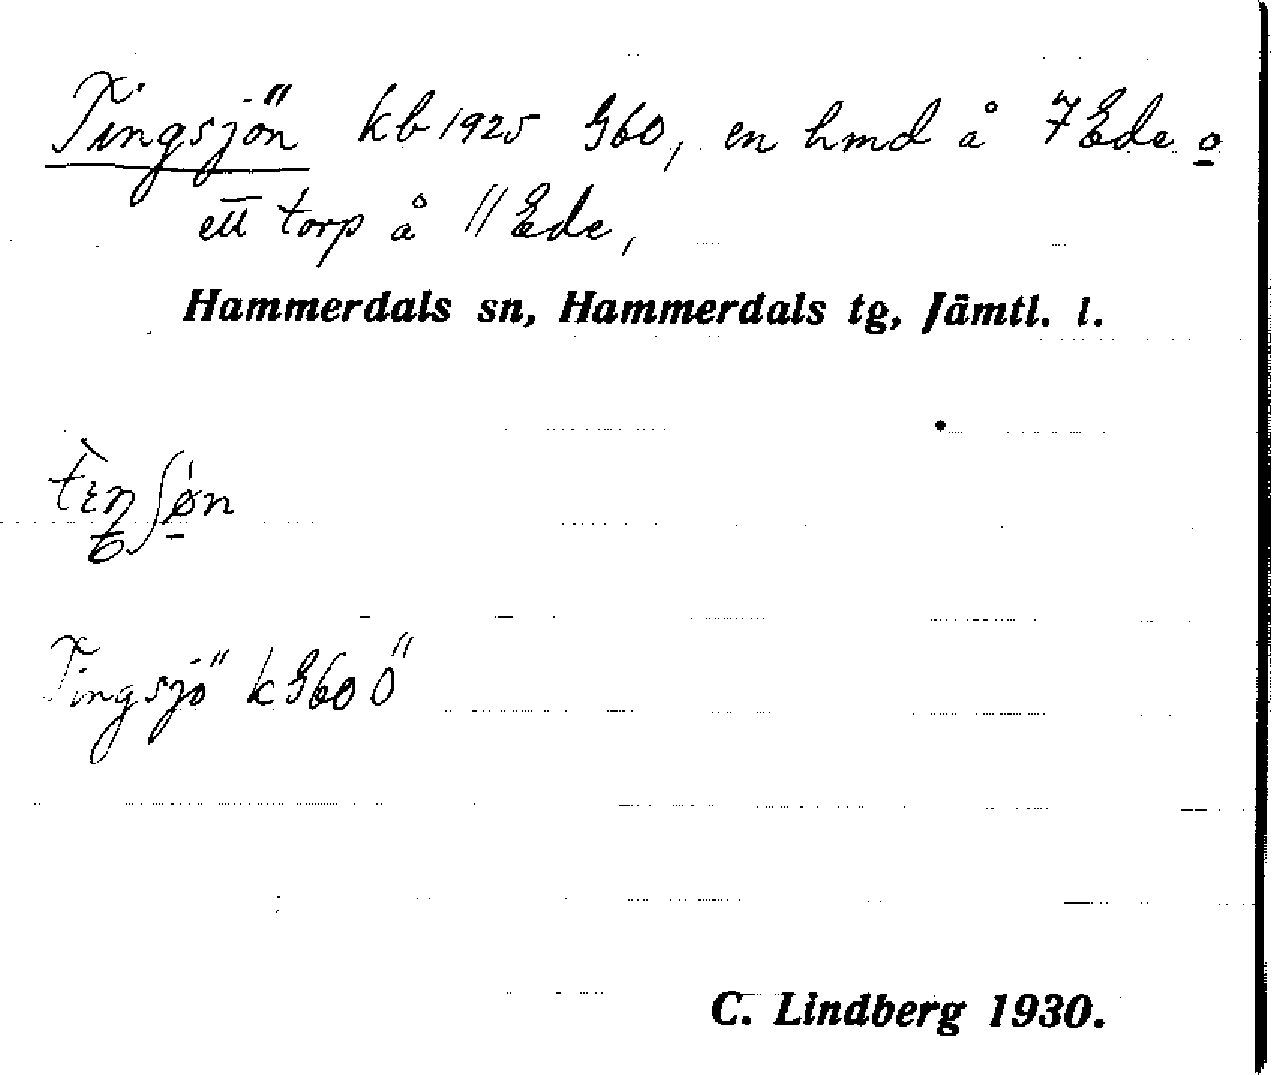 Tingsjön kb 1925 G60, en hmd å 7 Ede o
ett torp å 11 Ede,
Hammerdals sn, Hammerdals tg, Jämtl. l.
Tingsjö k G60 Ö
C. Lindberg 1930.